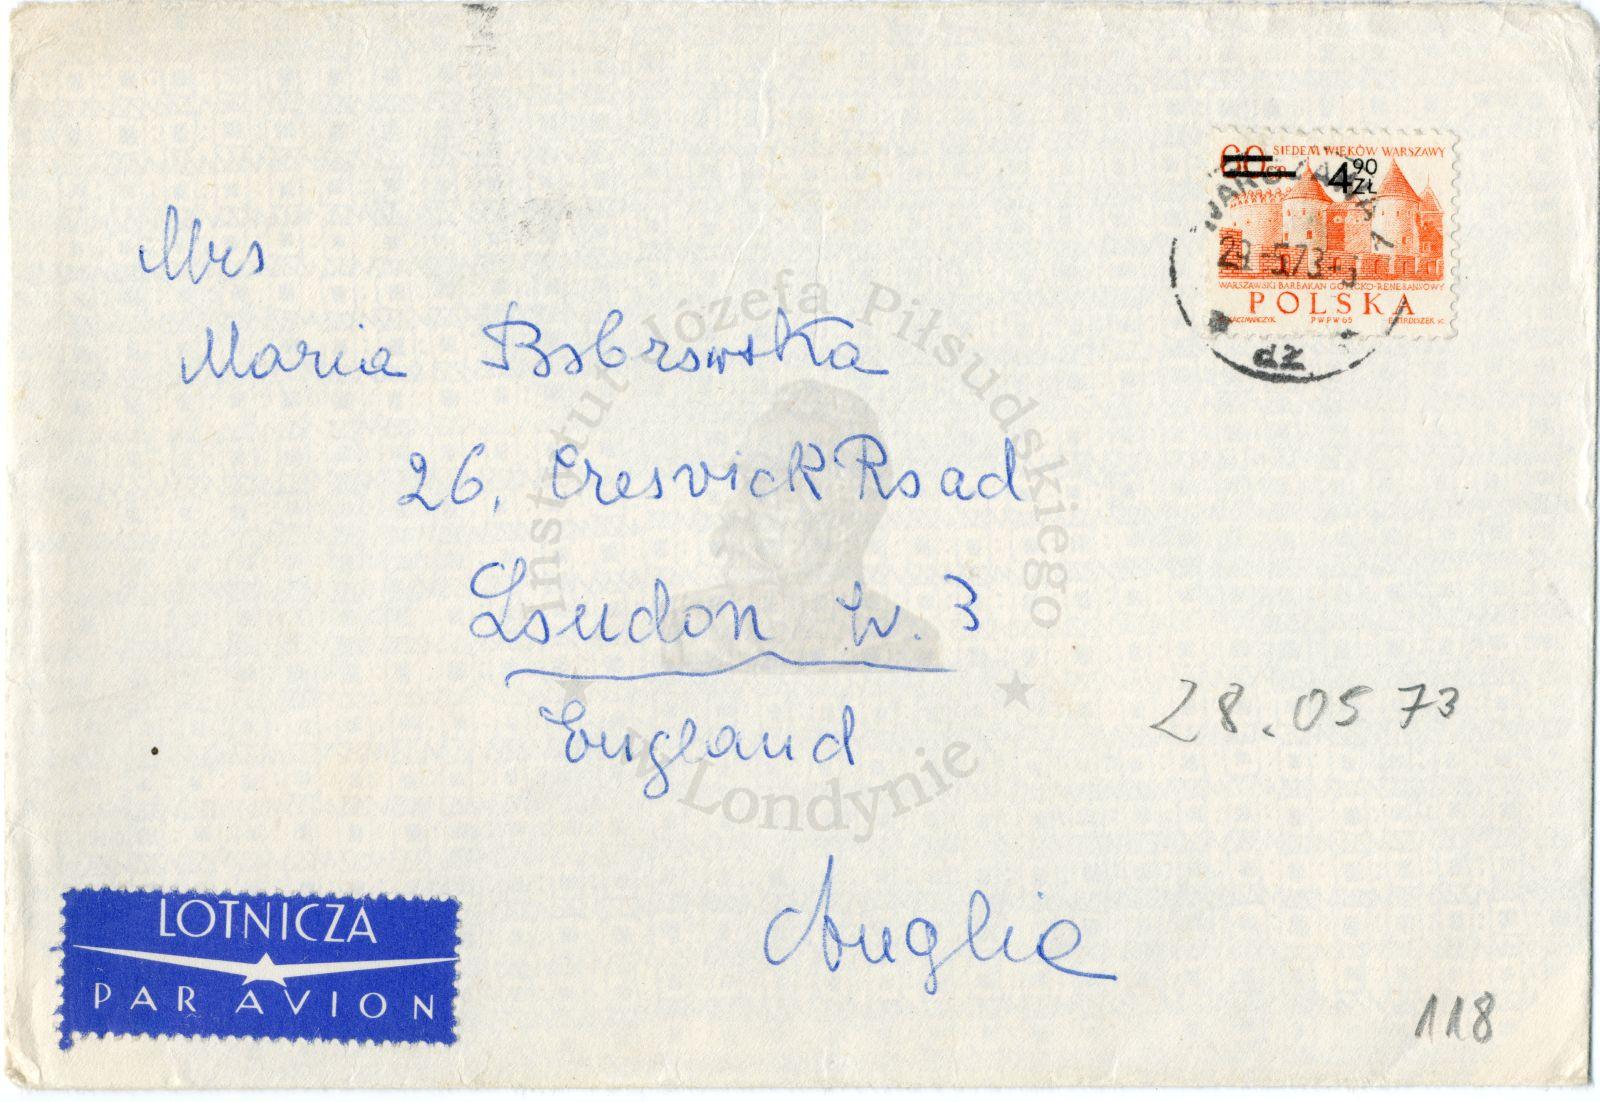 60 GR SIEDEM WIEKÓW WARSZAWY
4 90 ZŁ
WARSZAWA 1
29.-5.73
WARSZAWSKI BARBAKAN GOTYCKO-RENESANSOWY
POLSKA
KACZMARCZYK PWPW 65
dz
Mrs
Maria Bobrowska
26, Cresvick Road
London W. 3
England
Anglia
28.05 73
118
LOTNICZA
PAR AVION
Instytut Józefa Piłsudskiego
w Londynie